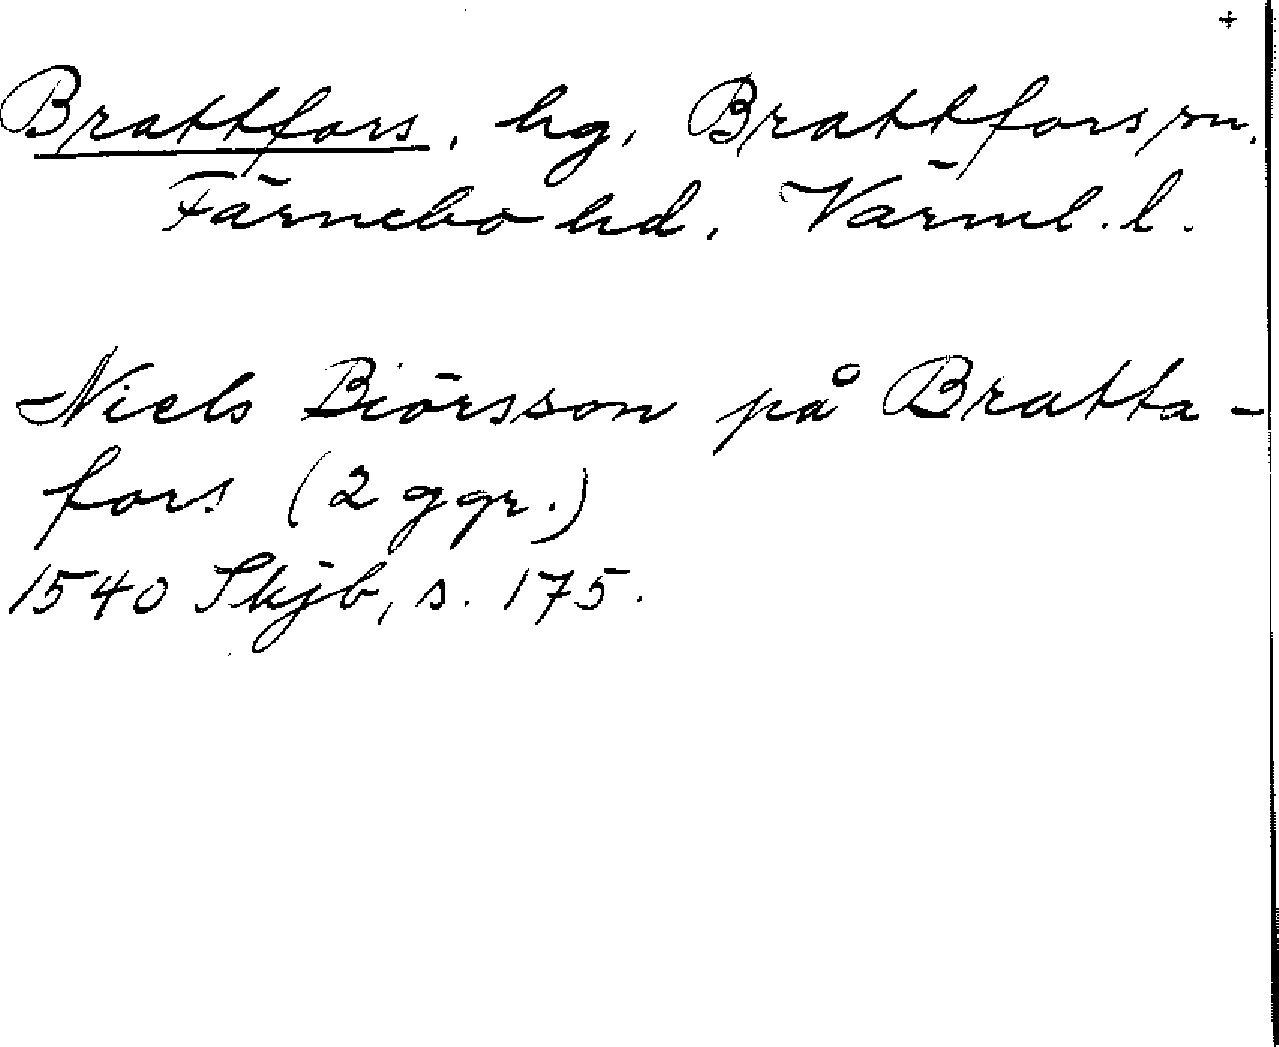 +
Brattfors, hg, Brattfors sn,
Färnebo hd, Värml. l.
Niels Biörsson på Bratta-
fors (2 ggr.)
1540 Skjb, s. 175.